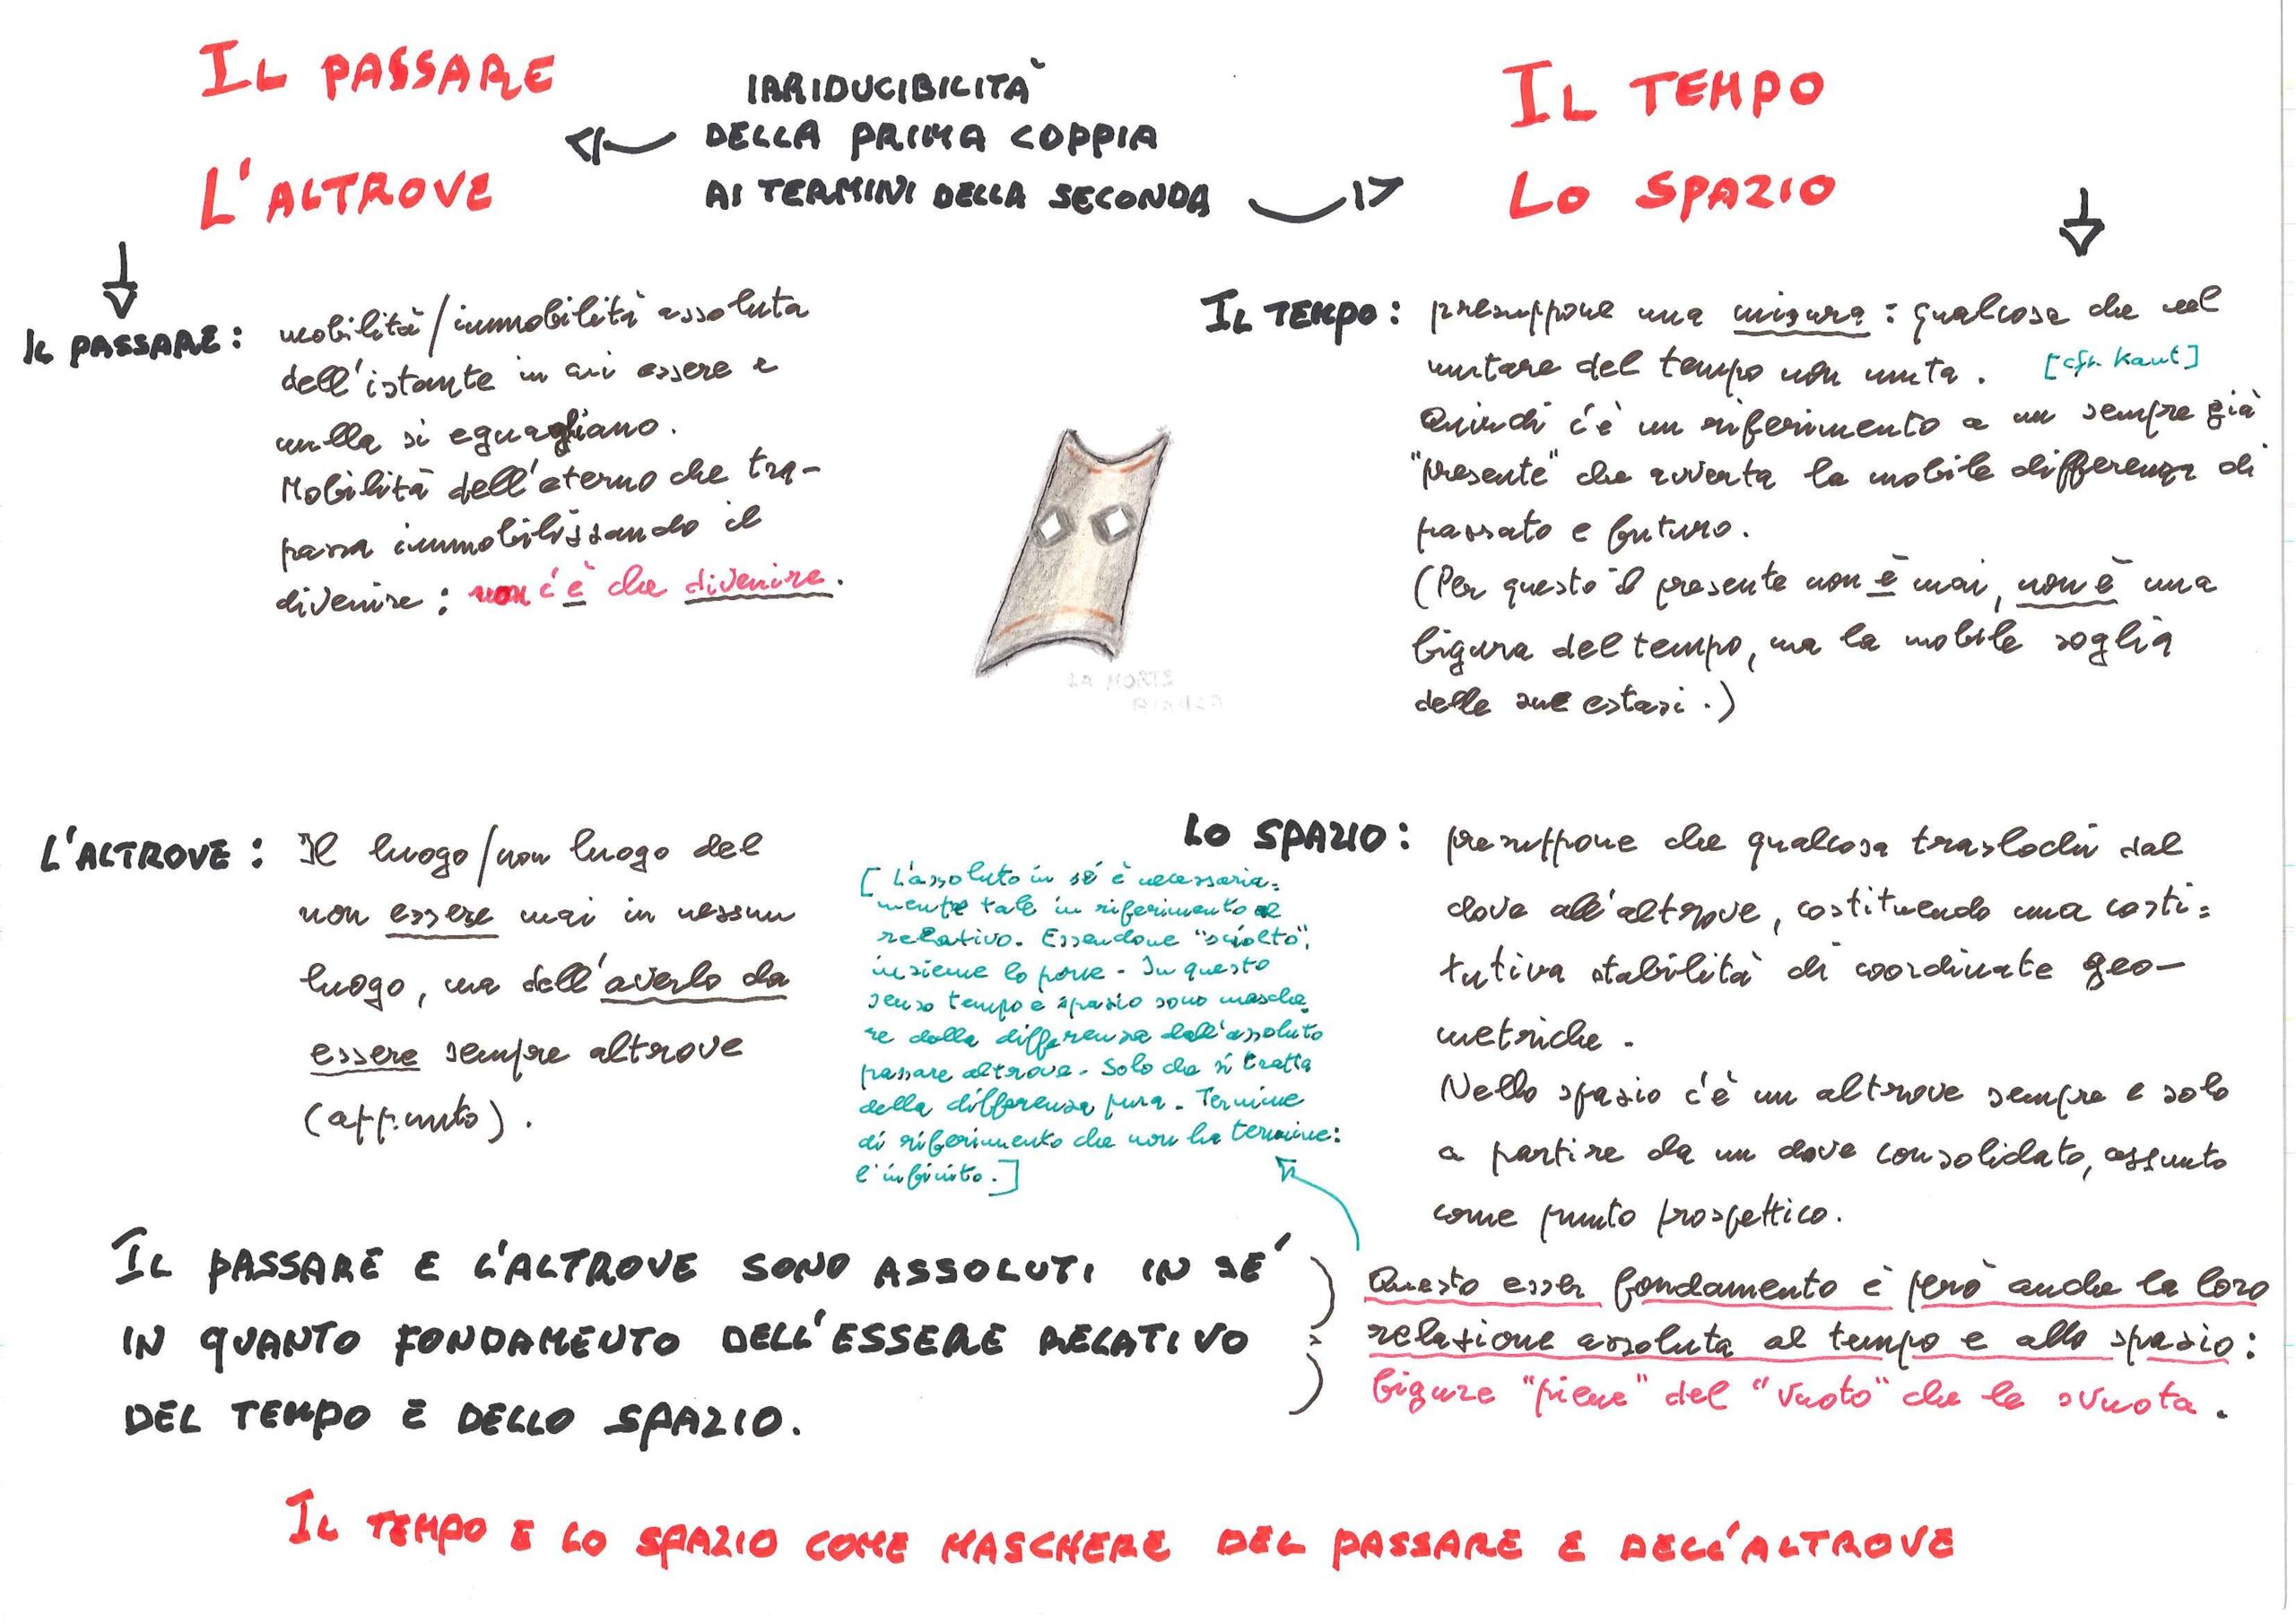 IL PASSARE
L'ALTROVE
IRRIDUCIBILITÀ
DELLA PRIMA COPPIA
AI TERMINI DELLA SECONDA
IL TEMPO
LO SPAZIO
IL PASSARE:
mobilità/immobilità assoluta
dell'istante in cui essere e
nulla si eguagliano.
Mobilità dell'eterno che tra-
passa immobilizzando il
divenire: non c'è che divenire.
IL TEMPO:
presuppone una misura: qualcosa che nel
mutare del tempo non muta. [cfr. Kant]
Quindi c'è un riferimento a un sempre già
"presente" che avverta la mobile differenza di
passato e futuro.
(Per questo il presente non è mai, non è una
figura del tempo, ma la mobile soglia
delle sue estasi.)
LA MORTE
L'ALTROVE:
Il luogo/non luogo del
non essere mai in nessun
luogo, ma dell'averlo da
essere sempre altrove
(appunto).
[L'assoluto in sé è necessaria=
mente tale in riferimento al
relativo. Essendone "sciolto",
insieme lo pone. In questo
senso tempo e spazio sono masche=
re della differenza dall'assoluto
passare altrove. Solo che si tratta
della differenza pura. Termine
di riferimento che non ha termine:
l'infinito.]
LO SPAZIO:
presuppone che qualcosa traslochi dal
dove all'altrove, costituendo una costi=
tutiva stabilità di coordinate geo-
metriche.
Nello spazio c'è un altrove sempre e solo
a partire da un dove consolidato, assunto
come punto prospettico.
IL PASSARE E L'ALTROVE SONO ASSOLUTI IN SÉ
IN QUANTO FONDAMENTO DELL'ESSERE RELATIVO
DEL TEMPO E DELLO SPAZIO.
Questo esser fondamento è però anche la loro
relazione assoluta al tempo e allo spazio:
figure "piene" del "vuoto" che le svuota.
IL TEMPO E LO SPAZIO COME MASCHERE DEL PASSARE E DELL'ALTROVE